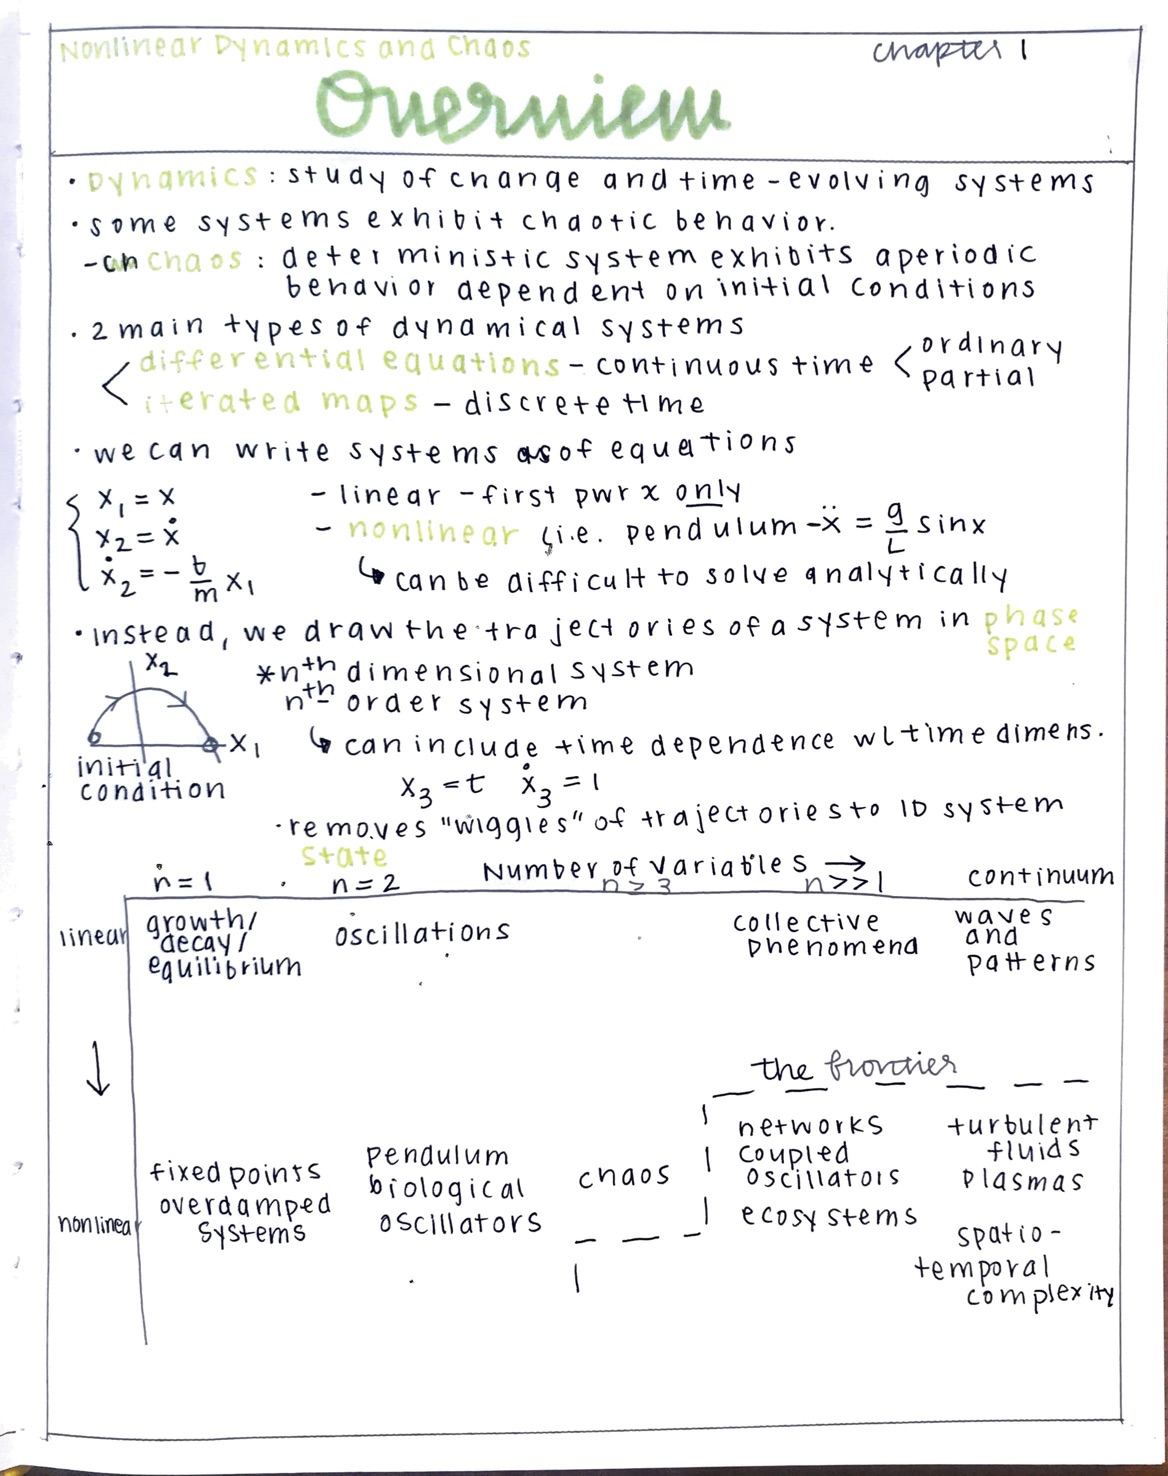 Nonlinear Dynamics and Chaos
chapter 1
Overview
• Dynamics : study of change and time - evolving systems
• some systems exhibit chaotic behavior.
- chaos : deterministic system exhibits aperiodic
behavior dependent on initial conditions
• 2 main types of dynamical systems
< differential equations - continuous time < ordinary
partial
iterated maps - discrete time
• we can write systems as of equations
{ x₁ = x
x₂ = ẋ
ẋ₂ = - b/m x₁
- linear - first pwr x only
- nonlinear i.e. pendulum - ẍ = g/L sinx
↳ can be difficult to solve analytically
• instead, we draw the trajectories of a system in phase
space
x₂
x₁
initial
condition
*nth dimensional system
nth order system
↳ can include time dependence w/ time dimens.
x₃ = t ẋ₃ = 1
• removes "wiggles" of trajectories to 1D system
state
Number of variables →
n = 1 n = 2 n ≥ 3 n >> 1 continuum
linear
growth/
decay/
equilibrium
oscillations
collective
phenomena
waves
and
patterns
↓
the frontier
nonlinear
fixed points
overdamped
systems
pendulum
biological
oscillators
chaos
networks
coupled
oscillators
ecosystems
turbulent
fluids
plasmas
spatio-
temporal
complexity